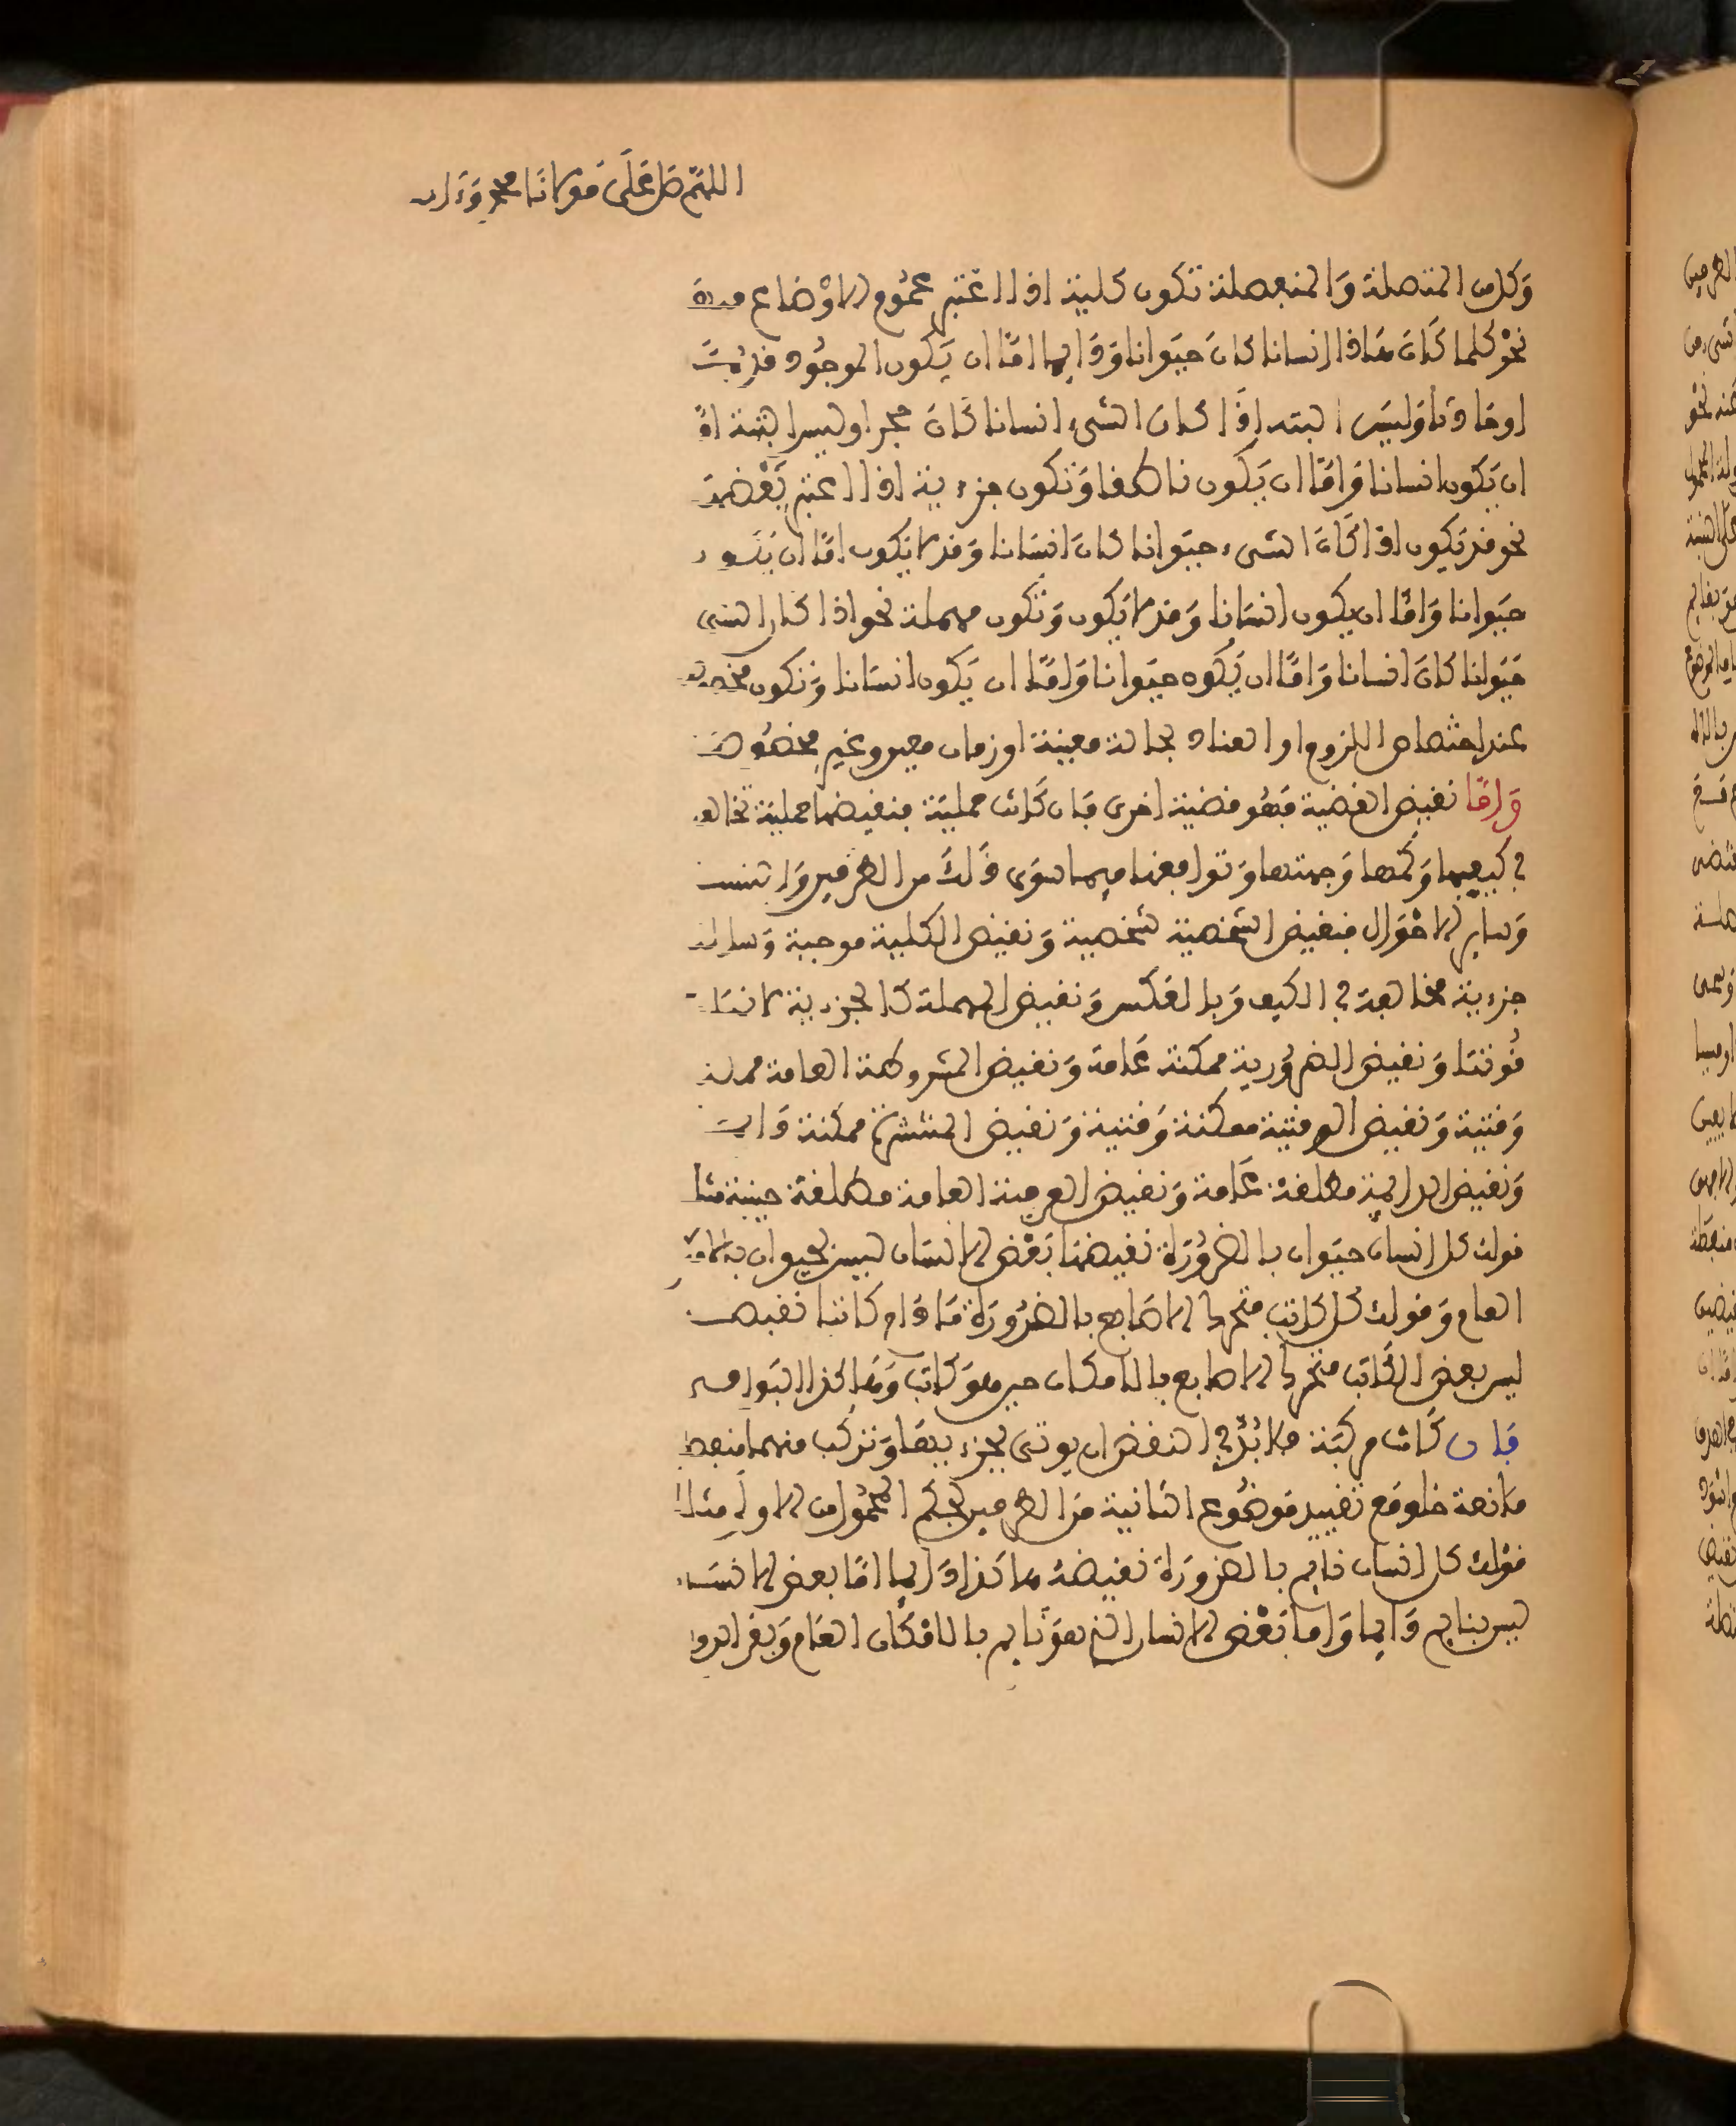 اللهم صل على مولانا محمد وءاله
وكل من المتصلة والمنفصلة تكون كلية اذا اعتبر عموم الاوضاع
نحو كلما كان هاذا انسانا كان حيوانا ودايما اما ان يكون الموجود قديما
او حادثا وليس البتة اذا كان الشيء انسانا كان حجرا وليس البتة اما
ان يكون انسانا واما ان يكون ناطقا وتكون جزءية اذا اعتبر بعضها
نحو قد يكون اذا كان الشيء حيوانا كان انسانا وقد لا يكون اما ان يكون
حيوانا واما ان يكون انسانا وقد لا يكون وتكون مهملة نحو اذا كان الشيء
حيوانا كان انسانا واما ان يكون حيوانا واما ان يكون انسانا وتكون مخصوصة
عند اختصاص اللزوم او العناد بحالة معينة او زمان معين وغير مخصوصة
واما نقيض القضية فهو قضية اخرى فان كانت حملية فنقيضها حملية تخالفها
في كيفيها وكمها وجهتها وتوافقها فيما سوى ذلك من الطرفين والنسبة
وساير الاحوال فنقيض الشخصية شخصية ونقيض الكلية موجبة وسالبة
جزءية مخالفة في الكيف وبالعكس ونقيض المهملة كالجزءية لانها
قوتها ونقيض الضرورية ممكنة عامة ونقيض المشروطة العامة ممكنة
وقتية ونقيض الوقتية ممكنة وقتية ونقيض المنتشرة ممكنة دايمة
ونقيض الدايمة مطلقة عامة ونقيض العرفية العامة مطلقة حينية مثل
قولك كل انسان حيوان بالضرورة نقيضها بعض الانسان ليس بحيوان بالامكان
العام وقولك كل كاتب متحرك الاصابع بالضرورة مادام كاتبا نقيضه
ليس بعض الكاتب متحرك الاصابع بالامكان حين هو كاتب وهاكذا البواقي
فان كانت مركبة فلابد في النقض ان يوتى بجزءيها وتركب منهما منفصلة
مانعة خلو مع تقييد موضوع الثانية من الطرفين بحكم المحمول من الاولى مثلا
قولك كل انسان نايم بالضرورة نقيضه هاكذا دايما اما بعض الانسان
ليس بنايم دايما واما بعض الانسان الذي هو نايم بالامكان العام